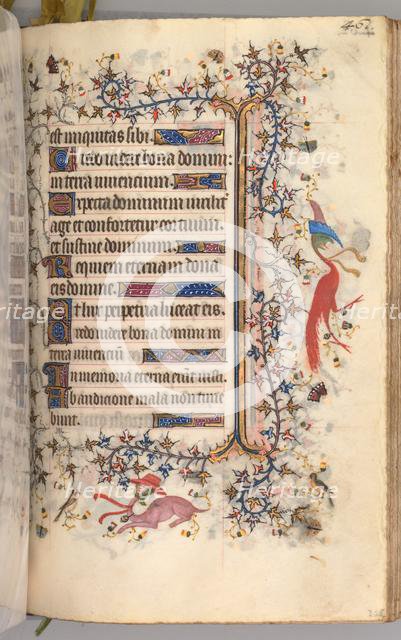 462
est iniquitas sibi.
Credo videre bona domini:
in terra viventium.
Expecta dominum viriliter
age et confortetur cor tuum.
et sustine dominum.
Requiem eternam dona
eis domine.
Et lux perpetua luceat eis.
Credo videre bona domini in
terra
In memoria eterna
Ab auditione mala non time
bunt.
Heritage Images